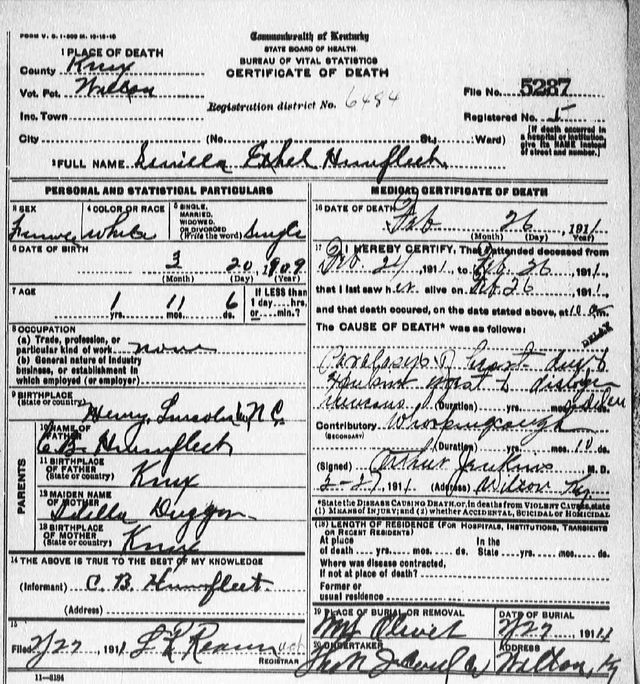 FORM V. S. 1-500 M. 10-15-10
Commonwealth of Kentucky
STATE BOARD OF HEALTH
BUREAU OF VITAL STATISTICS
CERTIFICATE OF DEATH
1 PLACE OF DEATH
County Knox
Vot. Pct. Wilton
Inc. Town
City
Registration district No. 6484
File No. 5287
Registered No. 5
(No. St.; Ward)
[If death occurred in a hospital or institution, give its NAME instead of street and number.]
2 FULL NAME Ethel Humfleet
PERSONAL AND STATISTICAL PARTICULARS
3 SEX
4 COLOR OR RACE White
5 SINGLE, MARRIED, WIDOWED, OR DIVORCED (Write the word) Single
6 DATE OF BIRTH
3 20 1909
(Month) (Day) (Year)
7 AGE
1 yrs. 11 mos. 6 ds.
If LESS than 1 day....hrs. or....min.?
8 OCCUPATION
(a) Trade, profession, or particular kind of work none
(b) General nature of industry business, or establishment in which employed (or employer)
9 BIRTHPLACE
(State or country) Henry, Lincoln N C
PARENTS
10 NAME OF FATHER C B Humfleet
11 BIRTHPLACE OF FATHER
(State or country) Knox
12 MAIDEN NAME OF MOTHER Duggar
13 BIRTHPLACE OF MOTHER
(State or country) Knox
14 THE ABOVE IS TRUE TO THE BEST OF MY KNOWLEDGE
(Informant) C. B. Humfleet
(Address)
15
Filed 2/27, 1911
REGISTRAR
11-3184
MEDICAL CERTIFICATE OF DEATH
16 DATE OF DEATH
Feb 26, 1911
(Month) (Day) Year)
17 I HEREBY CERTIFY, That I attended deceased from
Feb 24, 1911 to Feb 26, 1911
that I last saw her alive on Feb 26, 1911
and that death occured, on the date stated above, at 10 m.
The CAUSE OF DEATH* was as follows:
Paralasys of heart due to
(Duration) yrs. mos.
Contributory Whoopingcough
(SECONDARY)
(Duration) yrs. mos. 10 ds.
(Signed) Arthur Jenkins M. D.
2-27, 1911 (Address) Wilton Ky
*State the DISEASE CAUSING DEATH, or, in deaths from VIOLENT CAUSES, state (1) MEANS OF INJURY; and (2) whether ACCIDENTAL, SUICIDAL or HOMICIDAL.
(18) LENGTH OF RESIDENCE (FOR HOSPITALS, INSTITUTIONS, TRANSIENTS OR RECENT RESIDENTS)
At place of death yrs. mos. ds. In the State yrs. mos. ds.
Where was disease contracted, if not at place of death?
Former or usual residence
19 PLACE OF BURIAL OR REMOVAL Mt Olivet
DATE OF BURIAL 2/27 1911
20 UNDERTAKER
ADDRESS Wilton, Ky